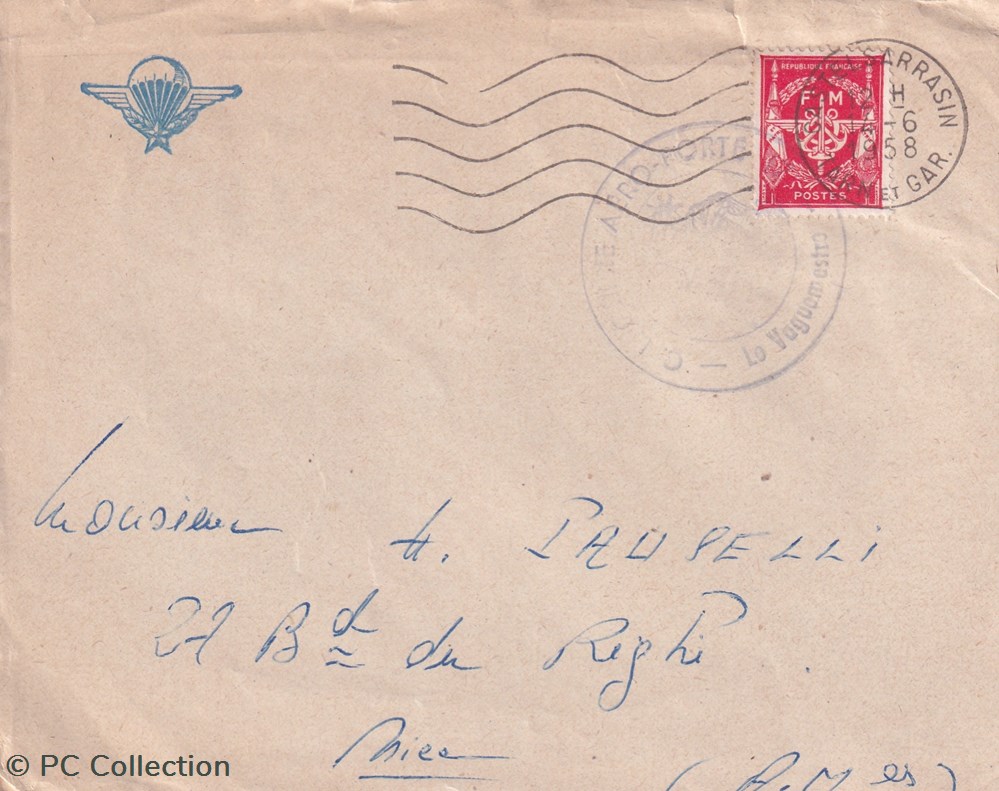 RÉPUBLIQUE FRANÇAISE
F M
POSTES
SARRASIN
H
-6
1958
ET GAR.
AÉRO-PORTÉE
Le Vaguemestre
Monsieur H. PAUSELLI
21 Bd du Righi
Nice
(A. Mes)
© PC Collection